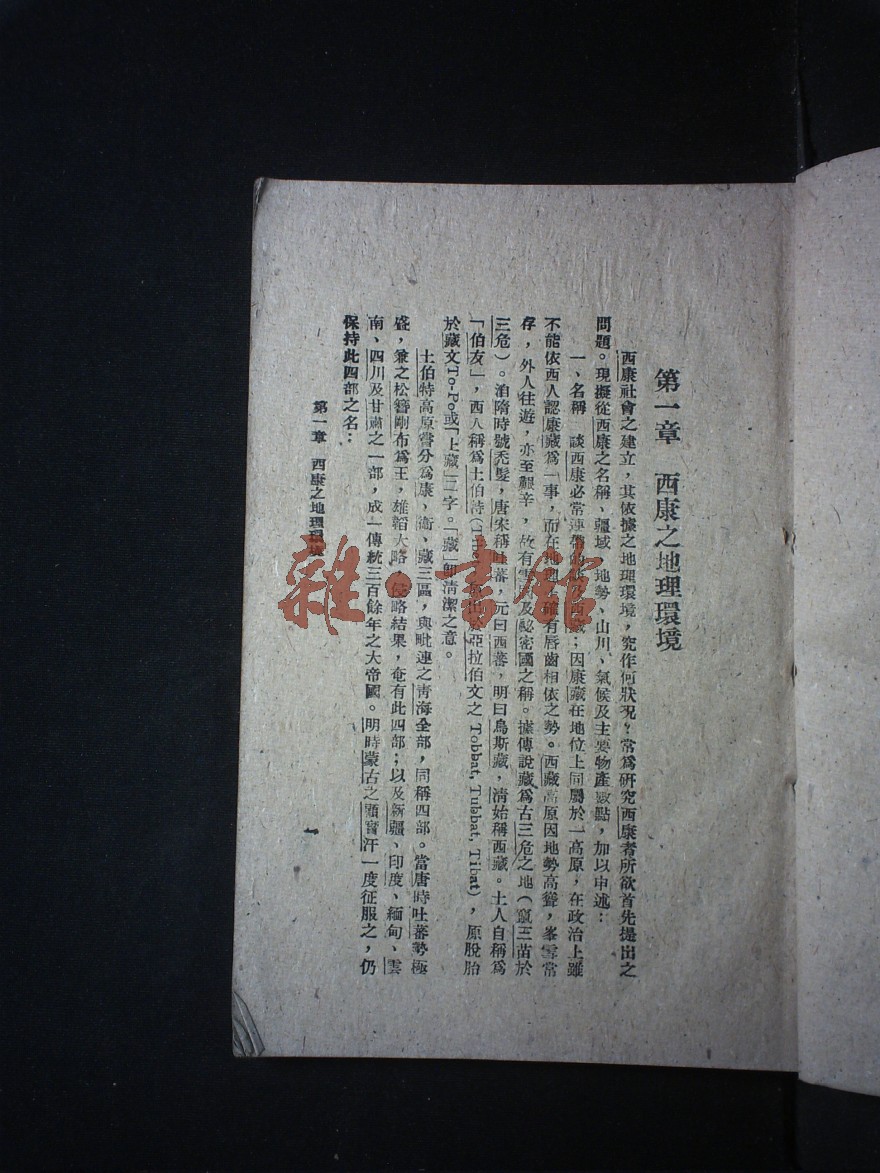 第一章　西康之地理環境
西康社會之建立，其依據之地理環境，究作何狀況？常爲研究西康者所欲首先提出之
問題。現擬從西康之名稱、疆域、地勢、山川、氣候及主要物產數點，加以申述：
一、名稱　談西康必常連帶的 及西藏；因康藏在地位上同屬於一高原，在政治上雖
不能依西人認康藏爲一事，而在地理上確有唇齒相依之勢。西藏高原因地勢高聳，峯雪常
存，外人往遊，亦至艱辛，故有雪 及祕密國之稱。據傳說藏爲古三危之地（竄三苗於
三危）。洎隋時號禿髮，唐宋稱吐蕃，元曰西蕃，明曰烏斯藏，清始稱西藏。土人自稱爲
「伯友」，西人稱爲土伯詩( 亞拉伯文之 Tobbat, Tubbat, Tibat)，原脫胎
於藏文To-Po或「上藏」二字。「藏」 清潔之意。
土伯特高原嘗分爲康、衞、藏三區，與毗連之青海全部，同稱四部。當唐時吐蕃勢極
盛，兼之松簪剛布爲王，雄韜大略，侵略結果，奄有此四部；以及新疆、印度、緬甸、雲
南、四川及甘肅之一部，成一傳統三百餘年之大帝國。明時蒙古之顧實汗一度征服之，仍
保持此四部之名：
第一章　西康之地理環境
一
雜·書館